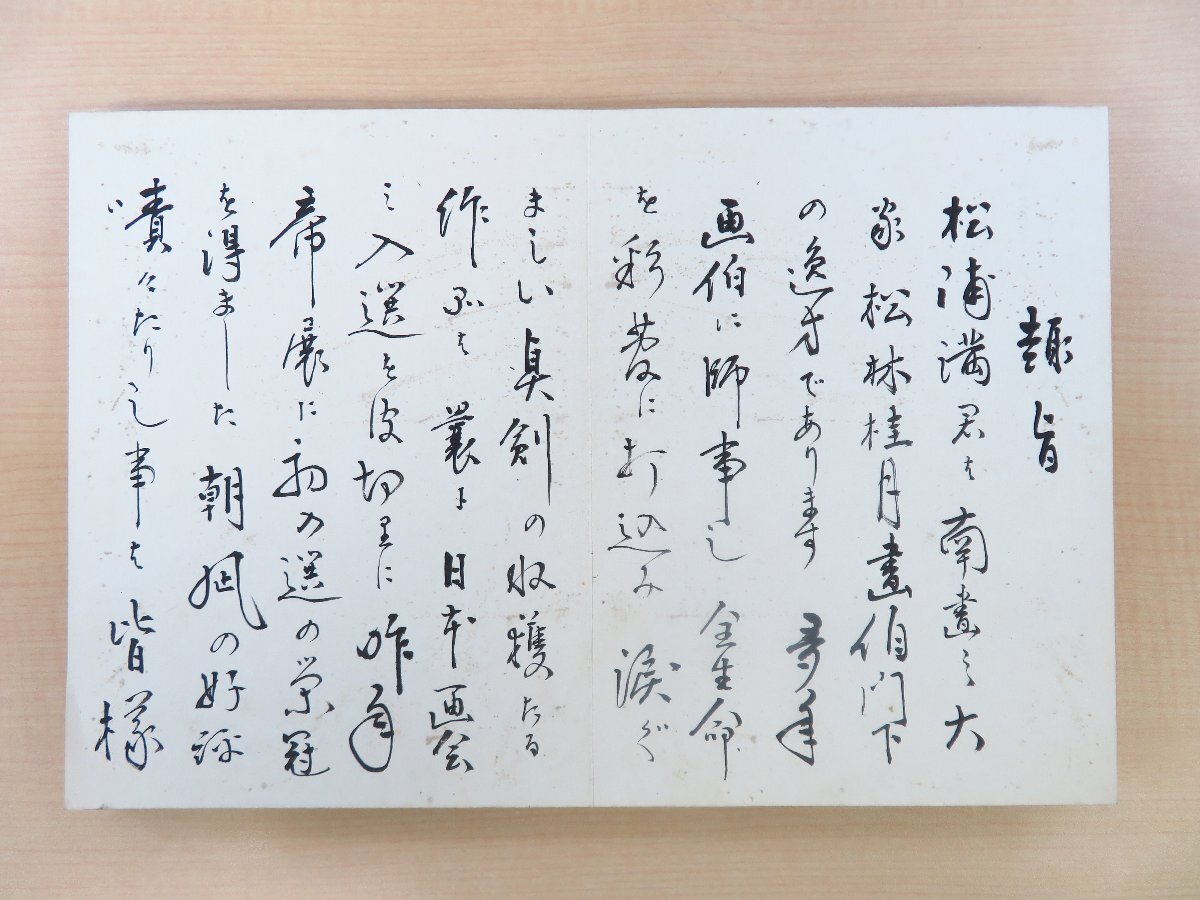 趣旨
松浦満君は南畫之大
家松林桂月畫伯門下
の逸才であります 多年
画伯に師事し 全生命
を彩管に打込み 涙ぐ
ましい真剣の収穫たる
作品は曩に日本画会
に入選を皮切りに昨年
帝展に初の選の栄冠
を得ました 朝野の好評
嘖々たりし事は皆様